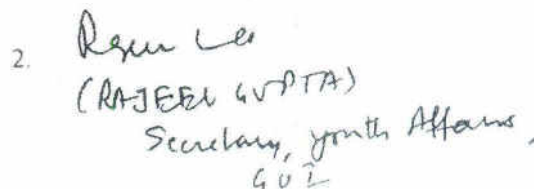 2.
(RAJEEV GUPTA)
Secretary, Youth Affairs,
GOI